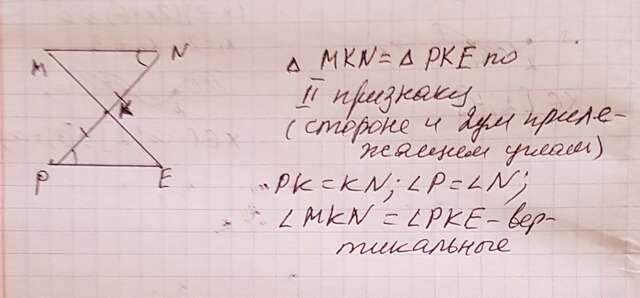 M N
K
P E
△ MKN = △ PKE по
II признаку
(стороне и 2ум приле-
жащем углам)
PK = KN; ∠P = ∠N;
∠MKN = ∠PKE - вер-
тикальные